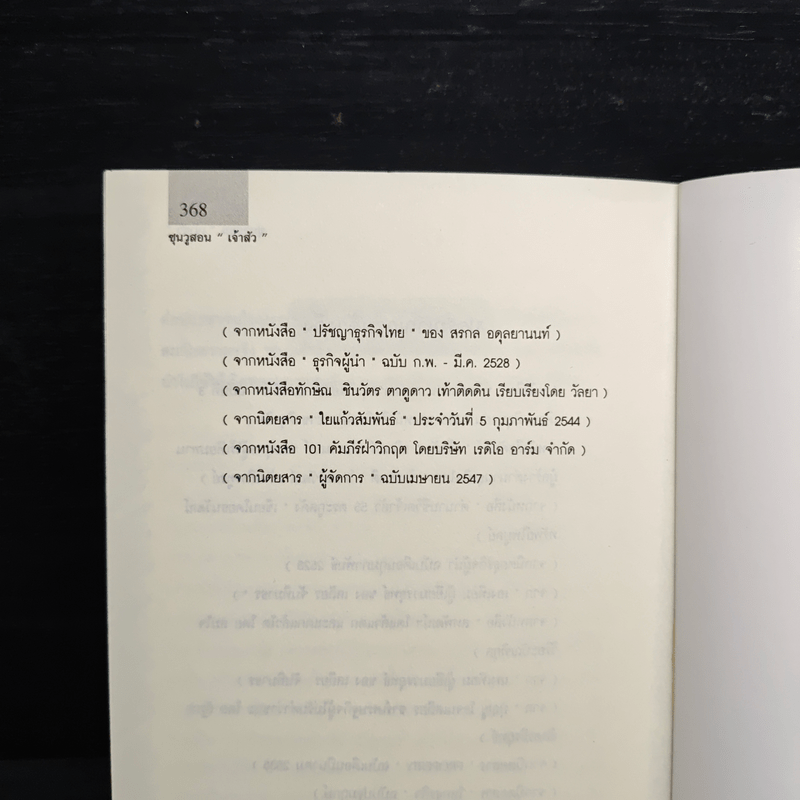 368
ซุนวูสอน " เจ้าสัว "
( จากหนังสือ " ปรัชญาธุรกิจไทย " ของ สรกล อดุลยานนท์ )
( จากหนังสือ " ธุรกิจผู้นำ " ฉบับ ก.พ. - มี.ค. 2528 )
( จากหนังสือทักษิณ ชินวัตร ตาดูดาว เท้าติดดิน เรียบเรียงโดย วัลยา )
( จากนิตยสาร " ใยแก้วสัมพันธ์ " ประจำวันที่ 5 กุมภาพันธ์ 2544 )
( จากหนังสือ 101 คัมภีร์ฝ่าวิกฤต โดยบริษัท เรดิโอ อาร์ม จำกัด )
( จากนิตยสาร " ผู้จัดการ " ฉบับเมษายน 2547 )